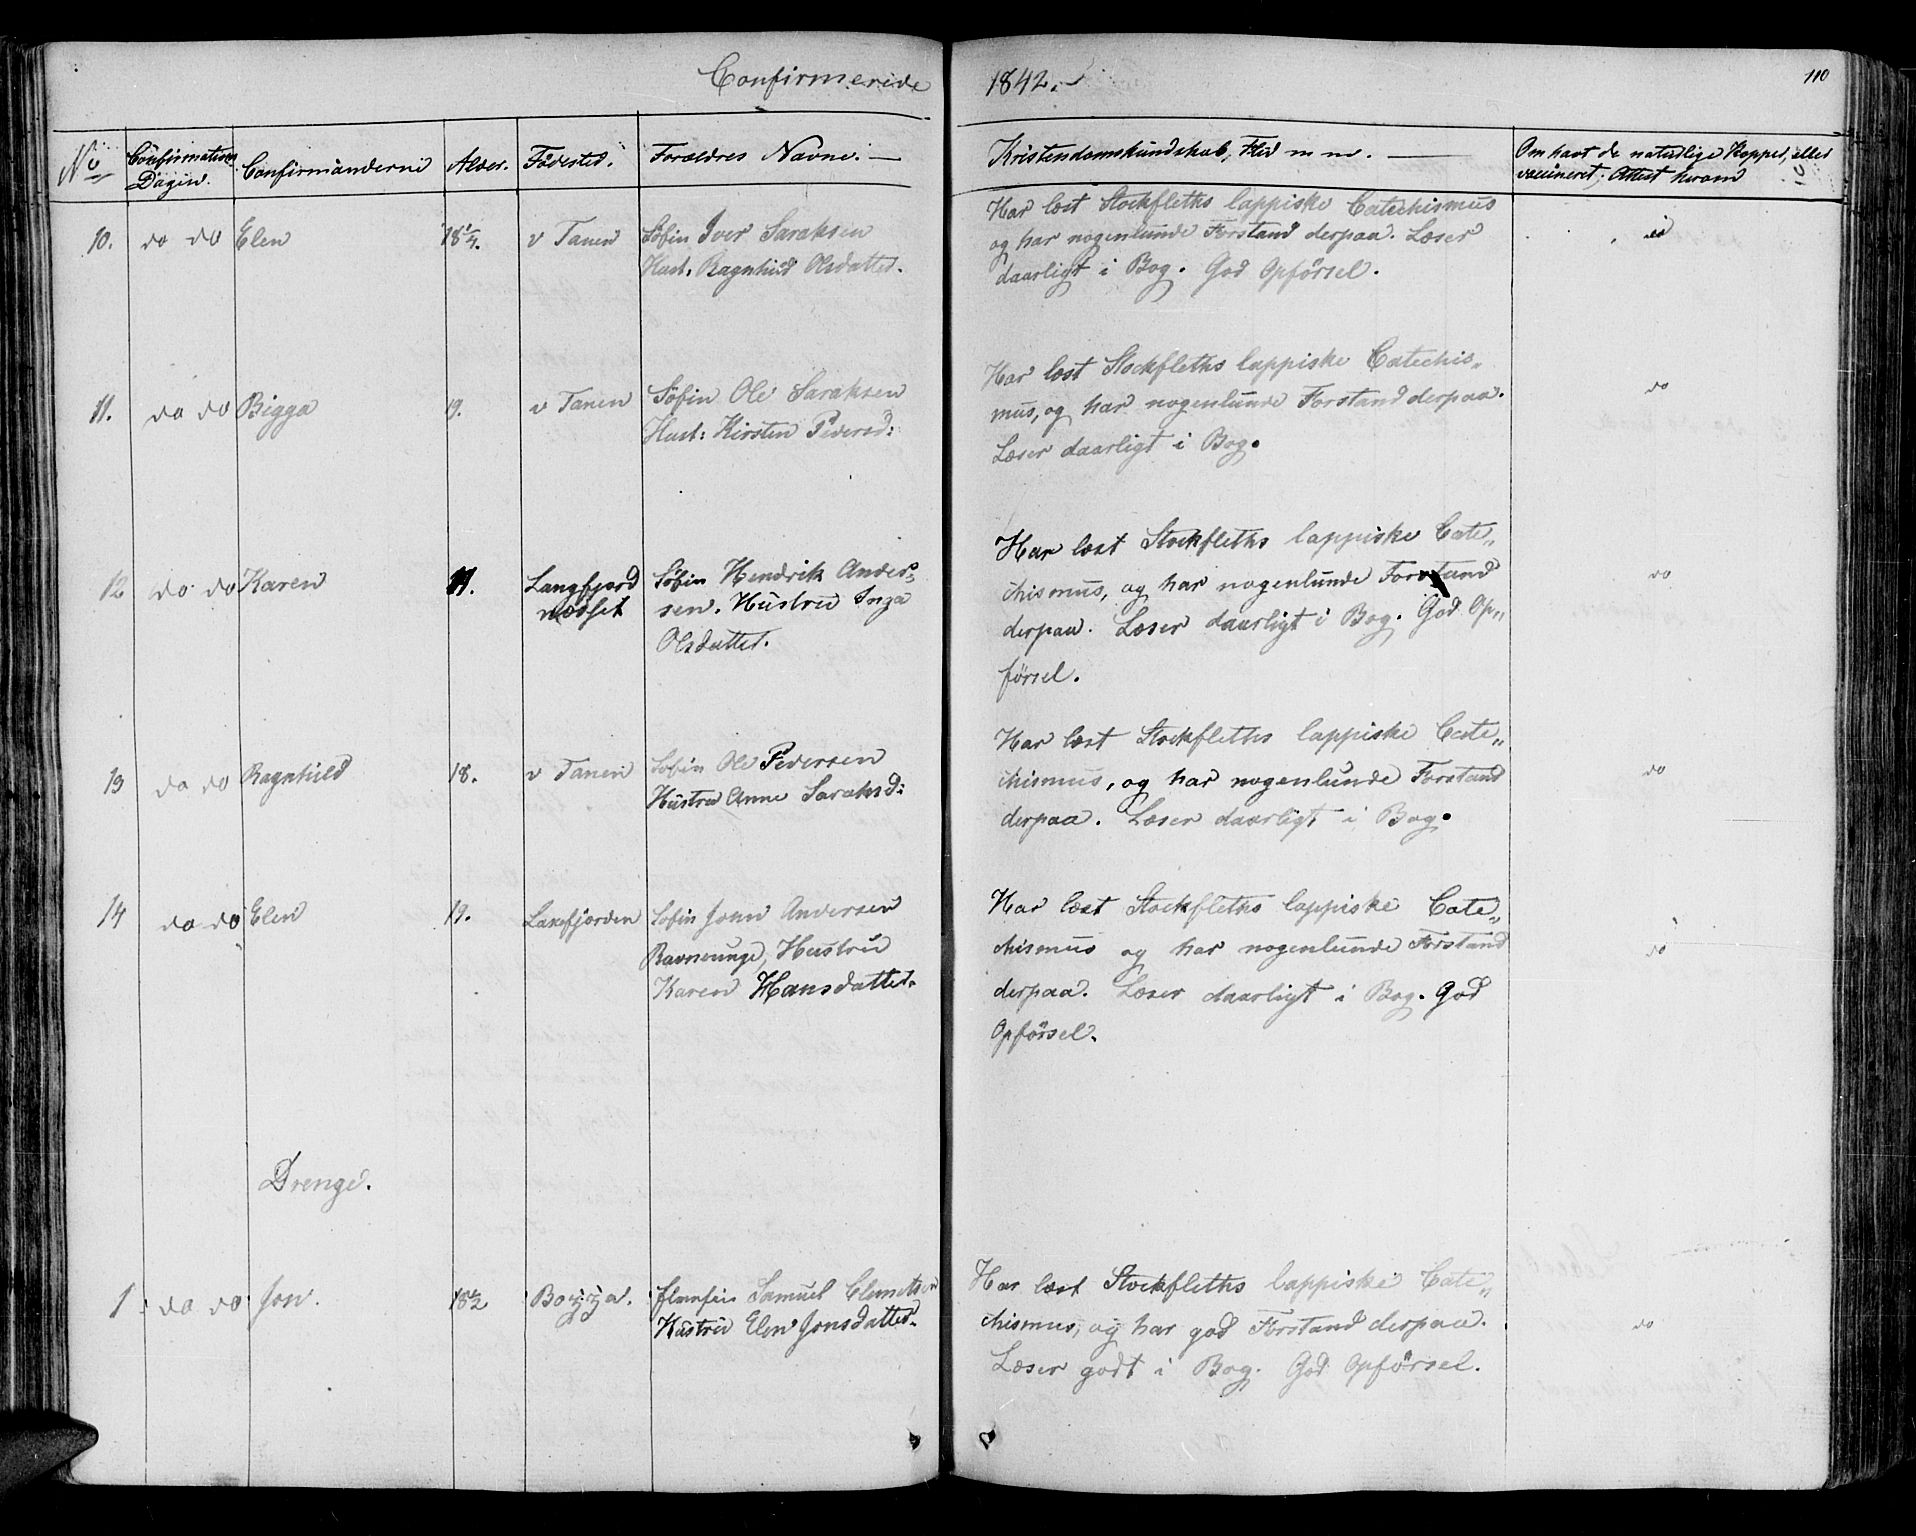 Confirmerede 1842. 110
No Confirmations Dagen. Confirmanderne Alder. Födested. Forældres Navne. Kristendomskundskab, Flid m m. Om havt de naturlige Kopper, eller
vaccineret, Attest herom
10. do do Elen 18 1/4. v Tanen Söfin Iver Saraksen
Hust. Ragnhild Olsdatter.
Har læst Stockfleths lappiske Catechismus
og har nogenlunde Forstand derpaa. Læser
daarligt i Bog. God Opförsel.
do
11. do do Bigga 19. v Tanen Söfin Ole Saraksen
Hust: Kirsten Pedersd:
Har læst Stockfleths lappiske Catechis„
mus, og har nogenlunde Forstand derpaa.
Læser daarligt i Bog.
do
12 do do Karen Langfjord
næsset
Söfin Hendrik Ander„
sen. Hustru Inga
Olsdatter.
Har læst Stockfleths lappiske Cate„
chismus, og har nogenlunde Forstand
derpaa. Læser daarligt i Bog. God Op„
försel.
do
13 do do Ragnhild 18. v Tanen Söfin Ole Pedersen
Hustru Anne Saraksd:
Har læst Stockfleths lappiske Cate„
chismus, og har nogenlunde Forstand
derpaa. Læser daarligt i Bog.
do
14 do do Elen 19. Laxefjorden Söfin John Andersen
Ravneunge, Hustru
Karen Hansdatter.
Har læst Stockfleths lappiske Cate„
chismus og har nogenlunde Forstand
derpaa. Læser daarligt i Bog. God
Opförsel.
do
Drenge.
1 do do Jon. 18 1/2 Samuel Clemetsen
Hustru Elen Jonsdatter.
Har læst Stockfleths lappiske Cate„
chismus, og har god Forstand derpaa.
Læser godt i Bog. God Opförsel.
do